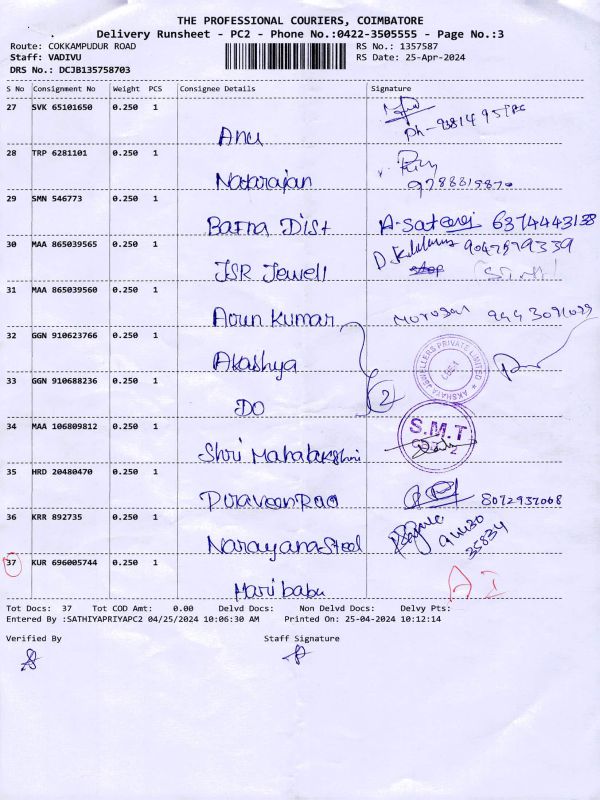 THE PROFESSIONAL COURIERS, COIMBATORE
Delivery Runsheet - PC2 - Phone No.:0422-3505555 - Page No.:3
Route: COKKAMPUDUR ROAD
RS No.: 1357587
Staff: VADIVU
RS Date: 25-Apr-2024
DRS No.: DCJB135758703
S No Consignment No Weight PCS Consignee Details Signature
27 SVK 65101650 0.250 1
Anu
28 TRP 6281101 0.250 1
Natarajan
9788815870
29 SMN 546773 0.250 1
Barna Dist
6374443138
30 MAA 865039565 0.250 1
JSR Jewell
9047579339
31 MAA 865039560 0.250 1
Arun Kumar
Murugan
32 GGN 910623766 0.250 1
Akashya
AKSHAYA JEWELLERS PRIVATE LIMITED
33 GGN 910688236 0.250 1
DO
2
34 MAA 106809812 0.250 1
Shri Mahalakshmi
S.M.T
2
35 HRD 20480470 0.250 1
PraveenRao
8072937068
36 KRR 892735 0.250 1
Narayana Steel
37 KUR 696005744 0.250 1
Maribabu
Tot Docs: 37 Tot COD Amt: 0.00 Delvd Docs: Non Delvd Docs: Delvy Pts:
Entered By :SATHIYAPRIYAPC2 04/25/2024 10:06:30 AM Printed On: 25-04-2024 10:12:14
Verified By Staff Signature